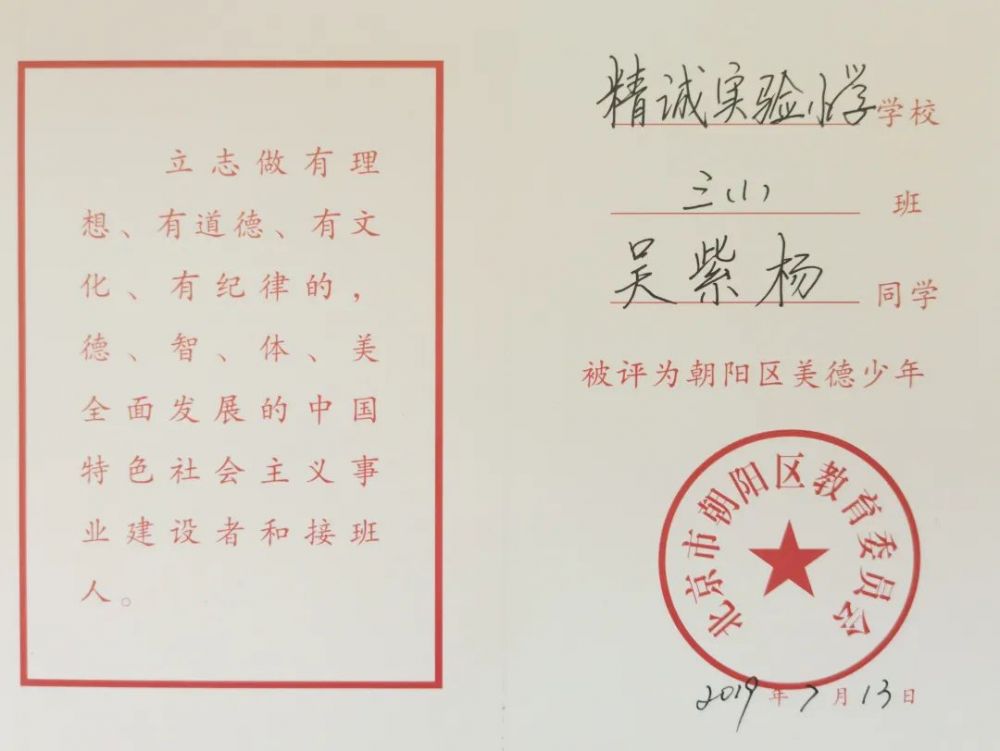 立志做有理
想、有道德、有文
化、有纪律的，
德、智、体、美
全面发展的中国
特色社会主义事
业建设者和接班
人。
精诚实验小学学校
三(1)班
吴紫杨同学
被评为朝阳区美德少年
北京市朝阳区教育委员会
2019年7月13日